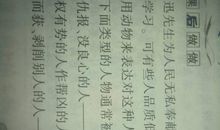 课后做做
迅先生为人民无私奉献
学习。可有些人品质低
用动物来表达对这种人
下面类型的人物通常被
仇报、没良心的人——
权有势的人作帮凶的
而获、剥削别人的人——